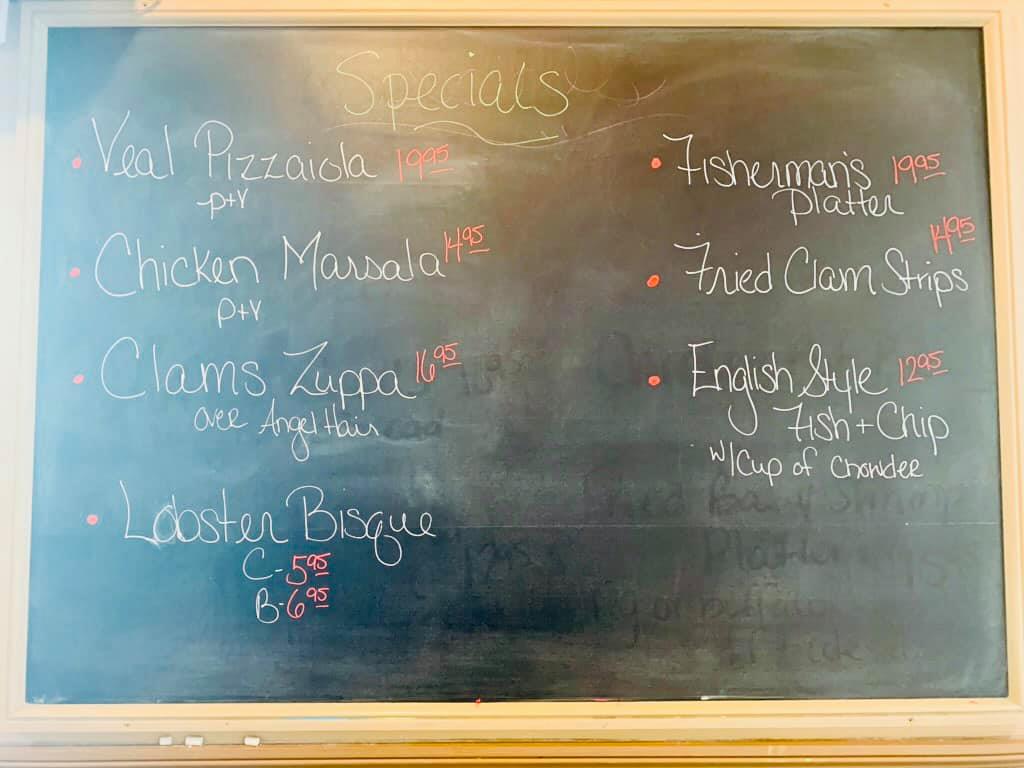 Specials
• Veal Pizzaiola 19 95
p+v
• Chicken Marsala 14 95
p+v
• Clams Zuppa 16 95
over Angel Hair
• Lobster Bisque
C- 5 95
B- 6 95
• Fisherman's 19 95
Platter
• Fried Clam Strips 14 95
• English Style 12 95
Fish + Chip
w/ Cup of Chowder